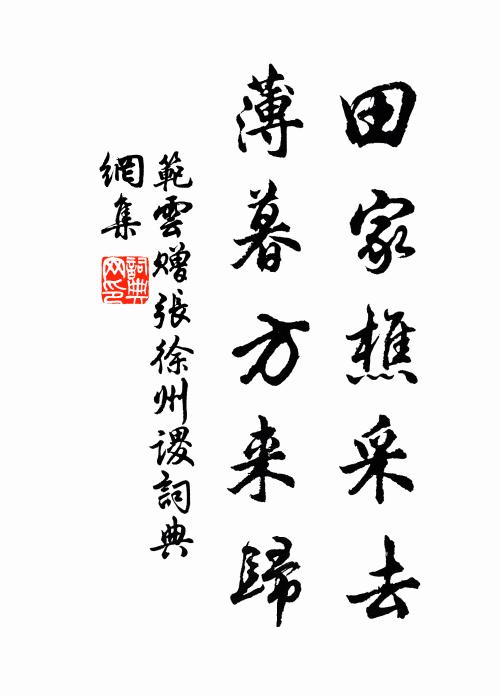 田家樵采去
薄暮方来歸
範雲赠張徐州谡詞典
網集
詞典
网印